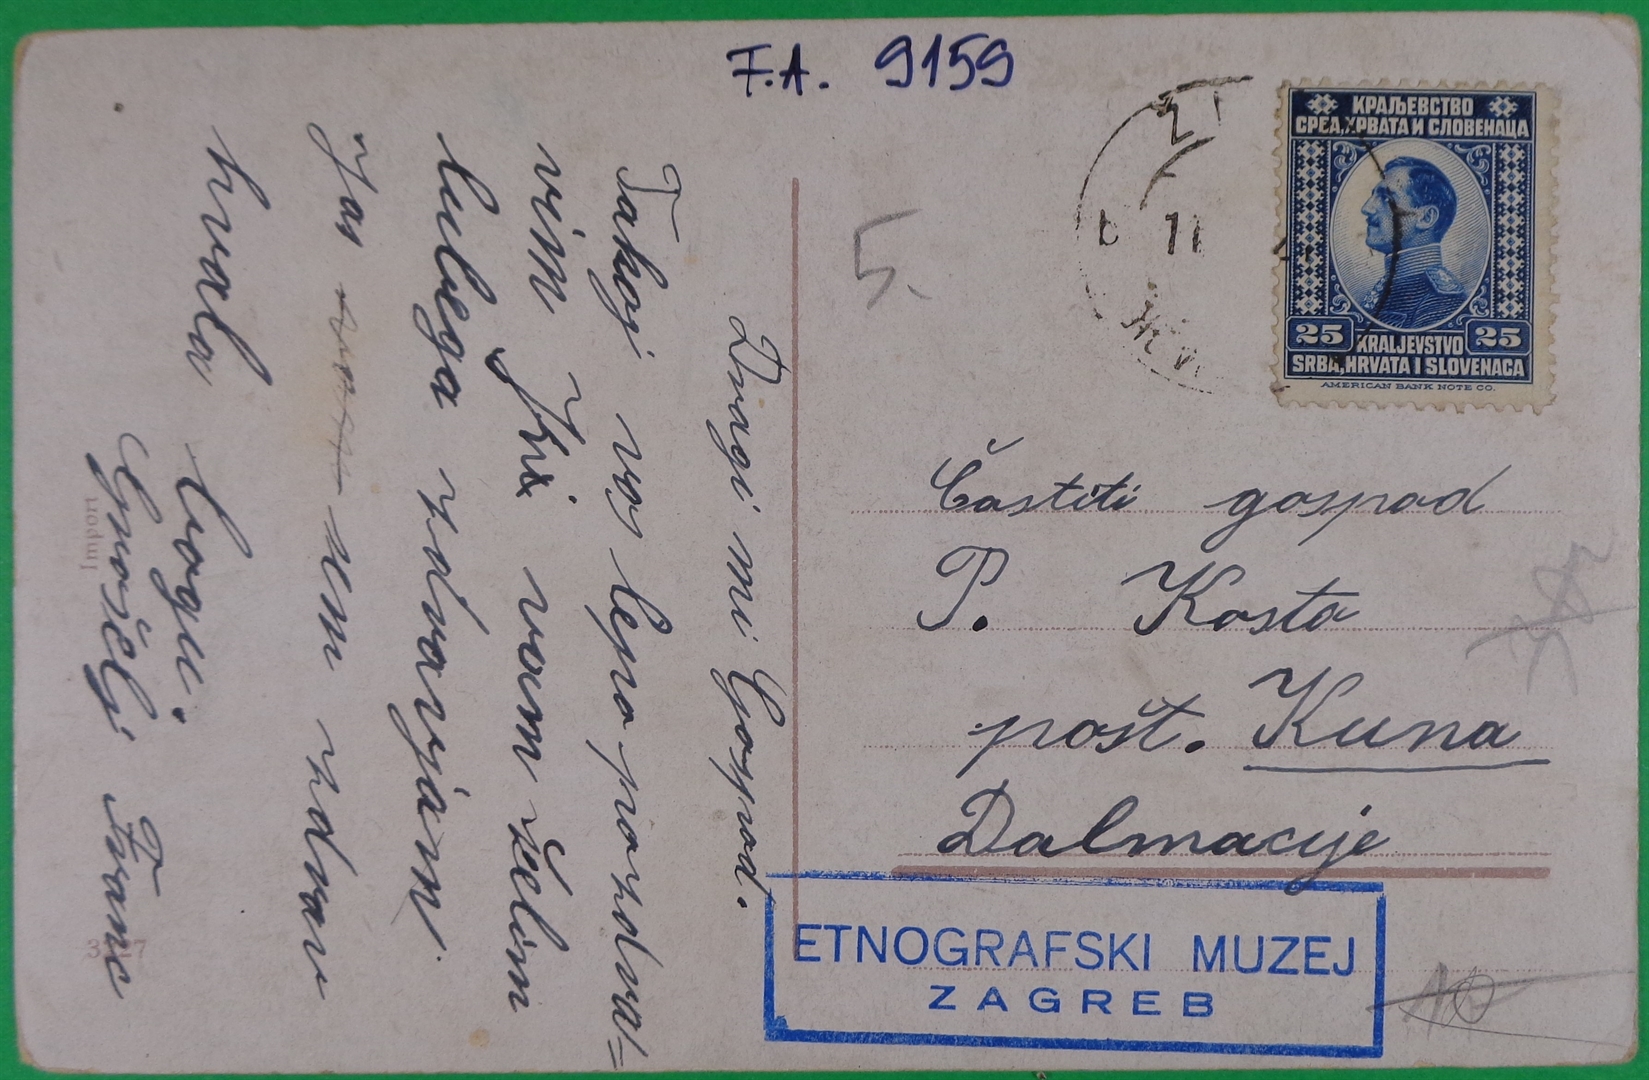 F.A. 9159
КРАЉЕВСТВО
СРБА, ХРВАТА И СЛОВЕНАЦА
25 25
KRALJEVSTVO
SRBA, HRVATA I SLOVENACA
AMERICAN BANK NOTE CO.
5.
Dragi mi Gospod.
Takoj vas lepo pozdra=
vim vam želim
lubega zdravja
Jas sem zdrav
hvala bogu.
Gnošelj Franc
Častiti gospod
P. Kosta
pošt. Kuna
Dalmacije
ETNOGRAFSKI MUZEJ
ZAGREB
Import